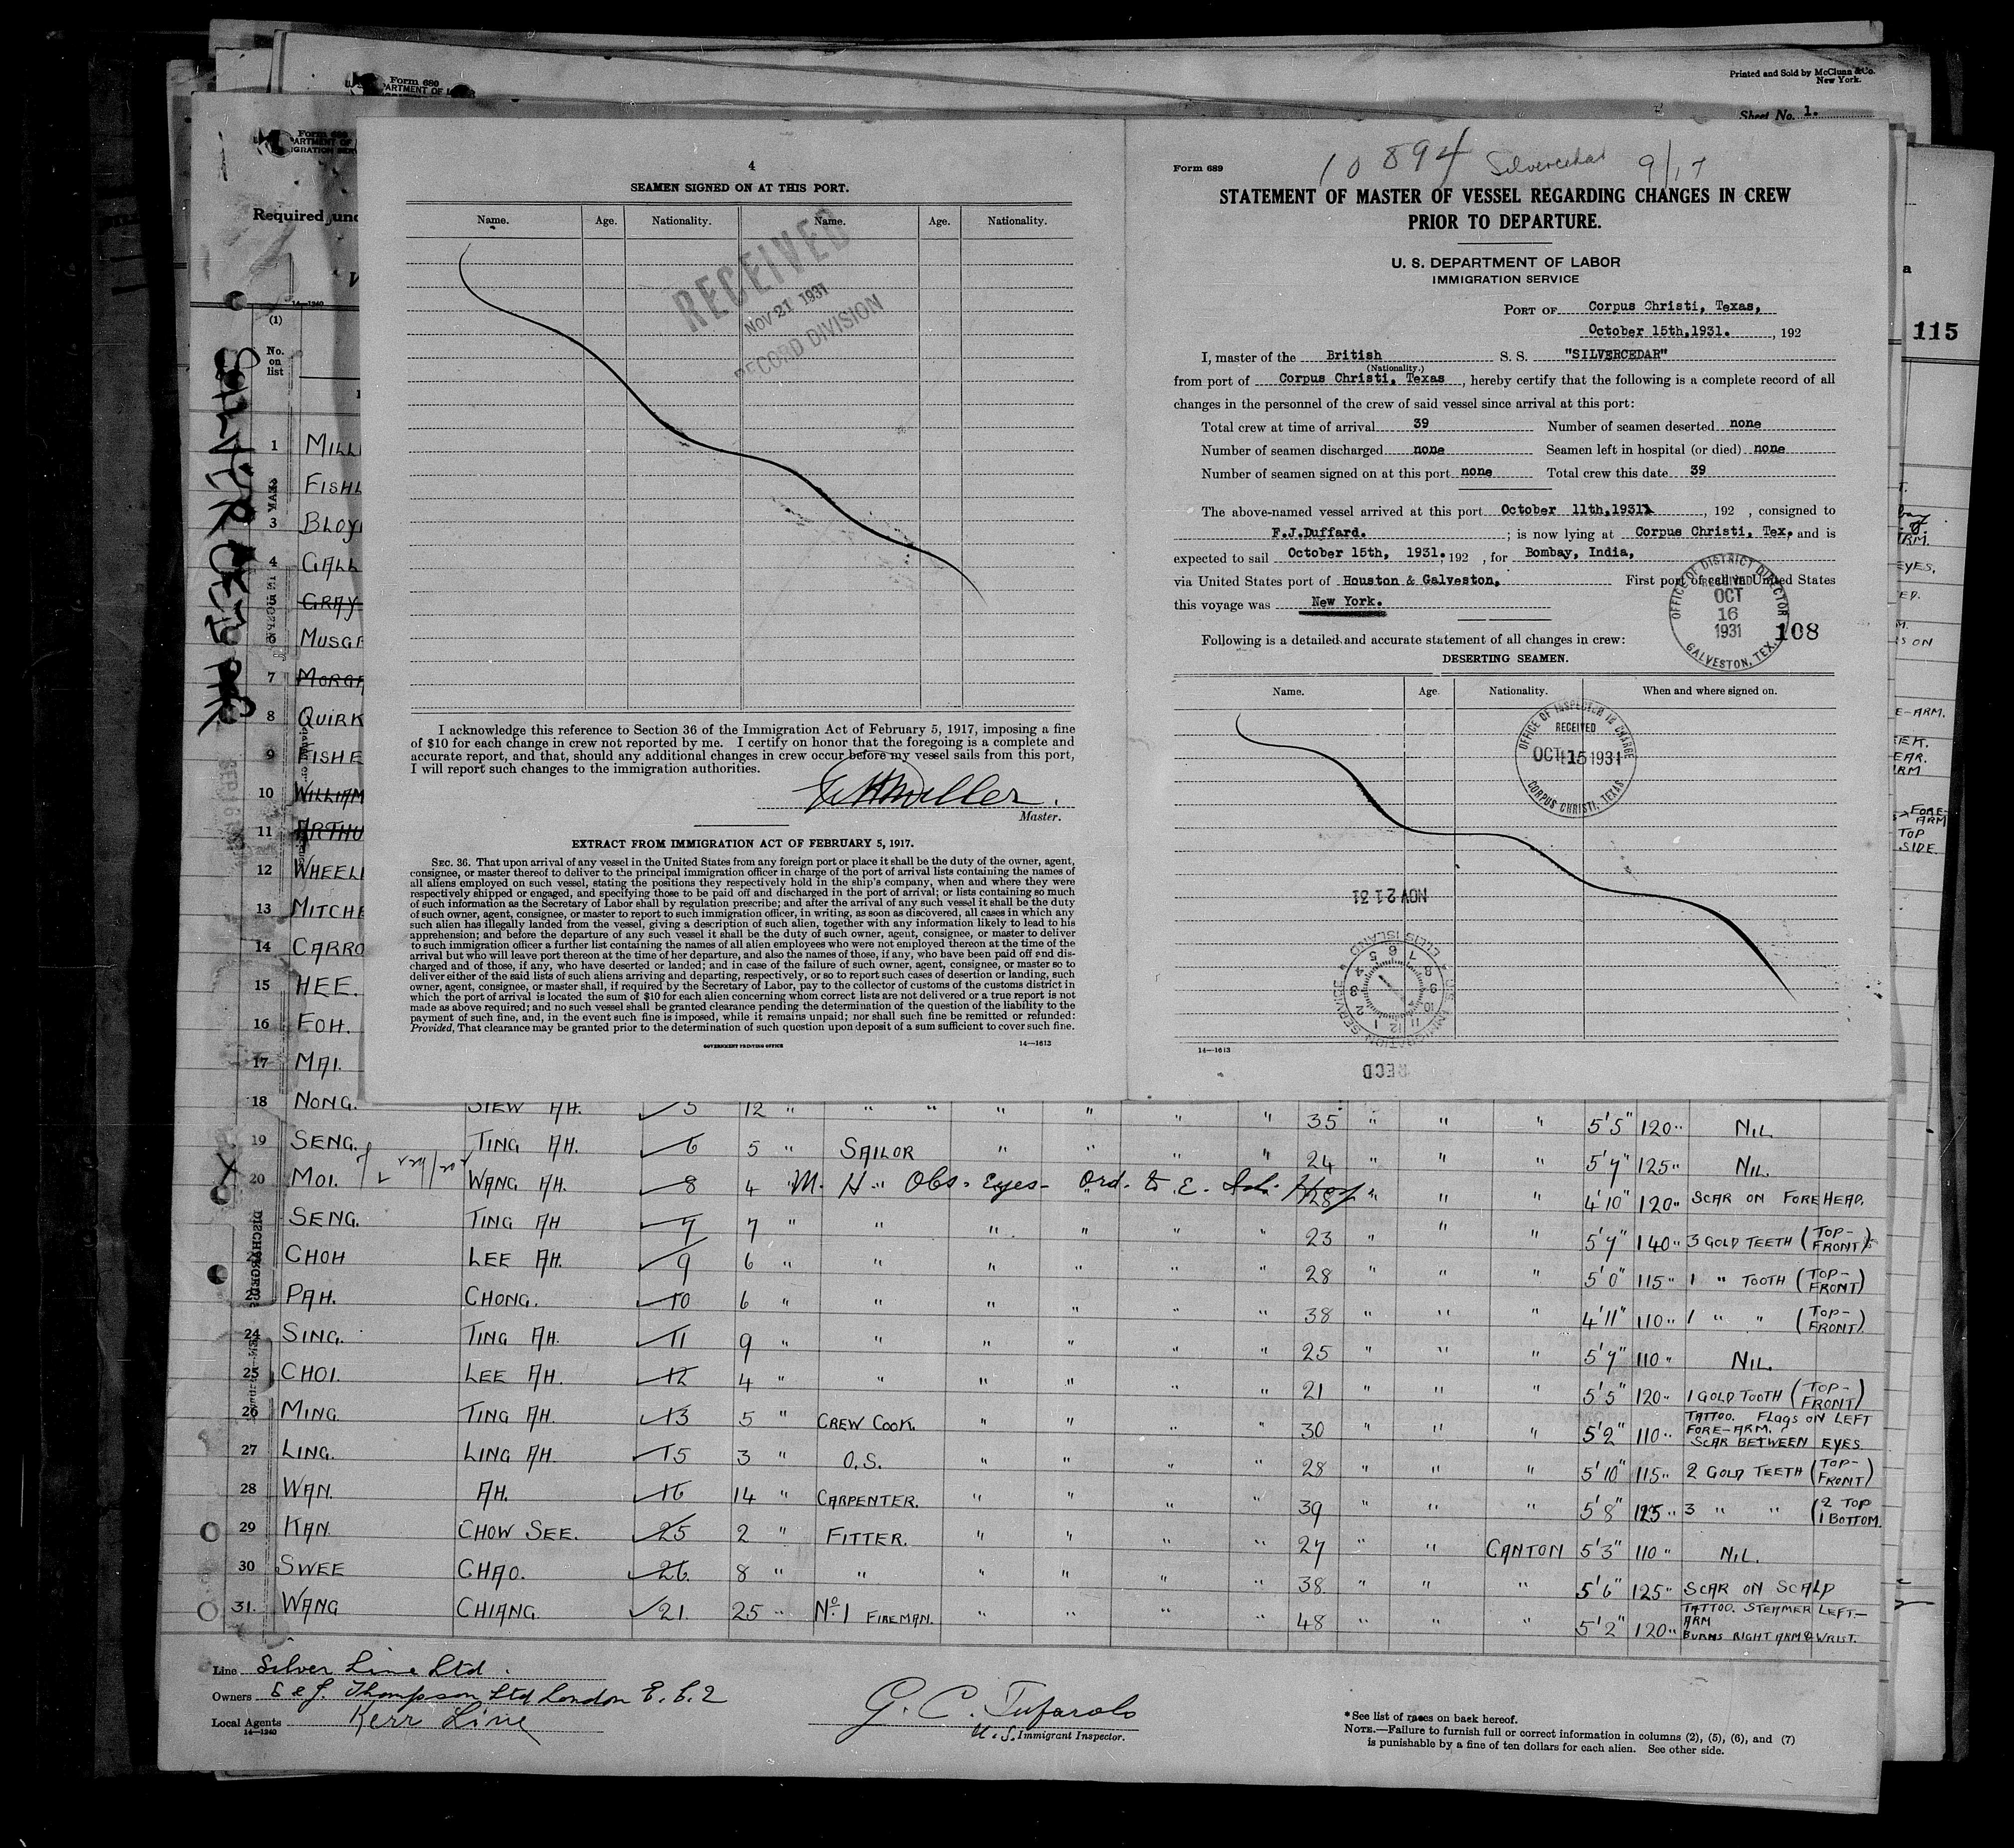 Printed and Sold by McClunn & Co.
New York.
Form 680
Sheet No. 1.
Form 689
115
Required und
14—1240
(1)
No.
on
list
SILVERCEDAR
4
SEAMEN SIGNED ON AT THIS PORT.
Name. Age. Nationality. Name. Age. Nationality.
RECEIVED
NOV 21 1931
RECORD DIVISION
I acknowledge this reference to Section 36 of the Immigration Act of February 5, 1917, imposing a fine
of $10 for each change in crew not reported by me. I certify on honor that the foregoing is a complete and
accurate report, and that, should any additional changes in crew occur before my vessel sails from this port,
I will report such changes to the immigration authorities.
Master.
EXTRACT FROM IMMIGRATION ACT OF FEBRUARY 5, 1917.
SEC. 36. That upon arrival of any vessel in the United States from any foreign port or place it shall be the duty of the owner, agent,
consignee, or master thereof to deliver to the principal immigration officer in charge of the port of arrival lists containing the names of
all aliens employed on such vessel, stating the positions they respectively hold in the ship's company, when and where they were
respectively shipped or engaged, and specifying those to be paid off and discharged in the port of arrival; or lists containing so much
of such information as the Secretary of Labor shall by regulation prescribe; and after the arrival of any such vessel it shall be the duty
of such owner, agent, consignee, or master to report to such immigration officer, in writing, as soon as discovered, all cases in which any
such alien has illegally landed from the vessel, giving a description of such alien, together with any information likely to lead to his
apprehension; and before the departure of any such vessel it shall be the duty of such owner, agent, consignee, or master to deliver
to such immigration officer a further list containing the names of all alien employees who were not employed thereon at the time of the
arrival but who will leave port thereon at the time of her departure, and also the names of those, if any, who have been paid off and dis-
charged and of those, if any, who have deserted or landed; and in case of the failure of such owner, agent, consignee, or master so to
deliver either of the said lists of such aliens arriving and departing, respectively, or so to report such cases of desertion or landing, such
owner, agent, consignee, or master shall, if required by the Secretary of Labor, pay to the collector of customs of the customs district in
which the port of arrival is located the sum of $10 for each alien concerning whom correct lists are not delivered or a true report is not
made as above required; and no such vessel shall be granted clearance pending the determination of the question of the liability to the
payment of such fine, and, in the event such fine is imposed, while it remains unpaid; nor shall such fine be remitted or refunded:
Provided, That clearance may be granted prior to the determination of such question upon deposit of a sum sufficient to cover such fine.
GOVERNMENT PRINTING OFFICE 14—1613
Form 689
10894 Silvercedar 9/17
STATEMENT OF MASTER OF VESSEL REGARDING CHANGES IN CREW
PRIOR TO DEPARTURE.
U. S. DEPARTMENT OF LABOR
IMMIGRATION SERVICE
PORT OF Corpus Christi, Texas,
October 15th,1931. , 192
I, master of the British S. S. "SILVERCEDAR"
(Nationality.)
from port of Corpus Christi, Texas , hereby certify that the following is a complete record of all
changes in the personnel of the crew of said vessel since arrival at this port:
Total crew at time of arrival 39 Number of seamen deserted none
Number of seamen discharged none Seamen left in hospital (or died) none
Number of seamen signed on at this port none Total crew this date 39
The above-named vessel arrived at this port October 11th,1931 , 192 , consigned to
F.J.Duffard. ; is now lying at Corpus Christi, Tex. and is
expected to sail October 15th, 1931. 192 , for Bombay, India,
via United States port of Houston & Galveston, First port of call in United States
this voyage was New York.
OFFICE OF DISTRICT DIRECTOR
RECEIVED
OCT
16
1931
GALVESTON, TEX.
108
Following is a detailed and accurate statement of all changes in crew:
DESERTING SEAMEN.
Name. Age. Nationality. When and where signed on.
OFFICE OF INSPECTOR IN CHARGE
RECEIVED
OCT 15 1931
CORPUS CHRISTI, TEXAS
NOV 21 31
U.S. IMMIGRATION SERVICE
ELLIS ISLAND
RECD
14—1613
1 MILL
2 FISHL
3 BLOY
4 GALL
5 GRAY
6 MUSGR
7 MORGA
8 QUIRK
9 FISHE
10 WILLIAM
11 ARTHU
12 WHEEL
13 MITCHE
14 CARRO
15 HEE.
16 FOH.
17 MAI.
18 NONG. SIEW AH. 5 12 " " " " " " " 35 " " " 5'5" 120 " NIL.
19 SENG. TING AH. 6 5 " SAILOR " " " " 24 " " " 5'7" 125 " NIL.
20 MOI. WANG AH. 8 4 " M. H. Obs. Eyes - Ord. to E. Isl. Hosp 28 " " " 4'10" 120 " SCAR ON FOREHEAD.
SENG. TING AH 7 7 " " " " " " 23 " " " 5'7" 140 " 3 GOLD TEETH (TOP-FRONT)
CHOH LEE AH. 9 6 " " " " " " 28 " " " 5'0" 115 " 1 " TOOTH (TOP-FRONT)
23 PAH. CHONG. 10 6 " " " " " " 38 " " " 4'11" 110 " 1 " " (TOP-FRONT)
24 SING. TING AH. 11 9 " " " " " " 25 " " " 5'7" 110 " NIL.
25 CHOI. LEE AH. 12 4 " " " " " " 21 " " " 5'5" 120 " 1 GOLD TOOTH (TOP-FRONT)
26 MING. TING AH. 13 5 " CREW COOK. " " " " 30 " " " 5'2" 110 " TATTOO. FLAGS ON LEFT FORE-ARM. SCAR BETWEEN EYES.
27 LING. LING AH. 15 3 " O.S. " " " " 28 " " " 5'10" 115 " 2 GOLD TEETH (TOP-FRONT)
28 WAN. AH. 16 14 " CARPENTER. " " " " 39 " " " 5'8" 125 " 3 " " (2 TOP 1 BOTTOM.
29 KAN. CHOW SEE. 25 2 " FITTER. " " " " 27 " " CANTON 5'3" 110 " NIL.
30 SWEE CHAO. 26 8 " " " " " " 38 " " " 5'6" 125 " SCAR ON SCALP
31. WANG CHIANG. 21. 25 " No. 1 FIREMAN. " " " " 48 " " " 5'2" 120 " TATTOO. STEAMER LEFT-ARM BURNS RIGHT ARM & WRIST.
Line Silver Line Ltd.
Owners S & J. Thompson Ltd London E. C. 2
Local Agents Kerr Line
14—1240
G. C. Tufarolo
U. S. Immigrant Inspector.
* See list of races on back hereof.
NOTE.—Failure to furnish full or correct information in columns (2), (5), (6), and (7)
is punishable by a fine of ten dollars for each alien. See other side.